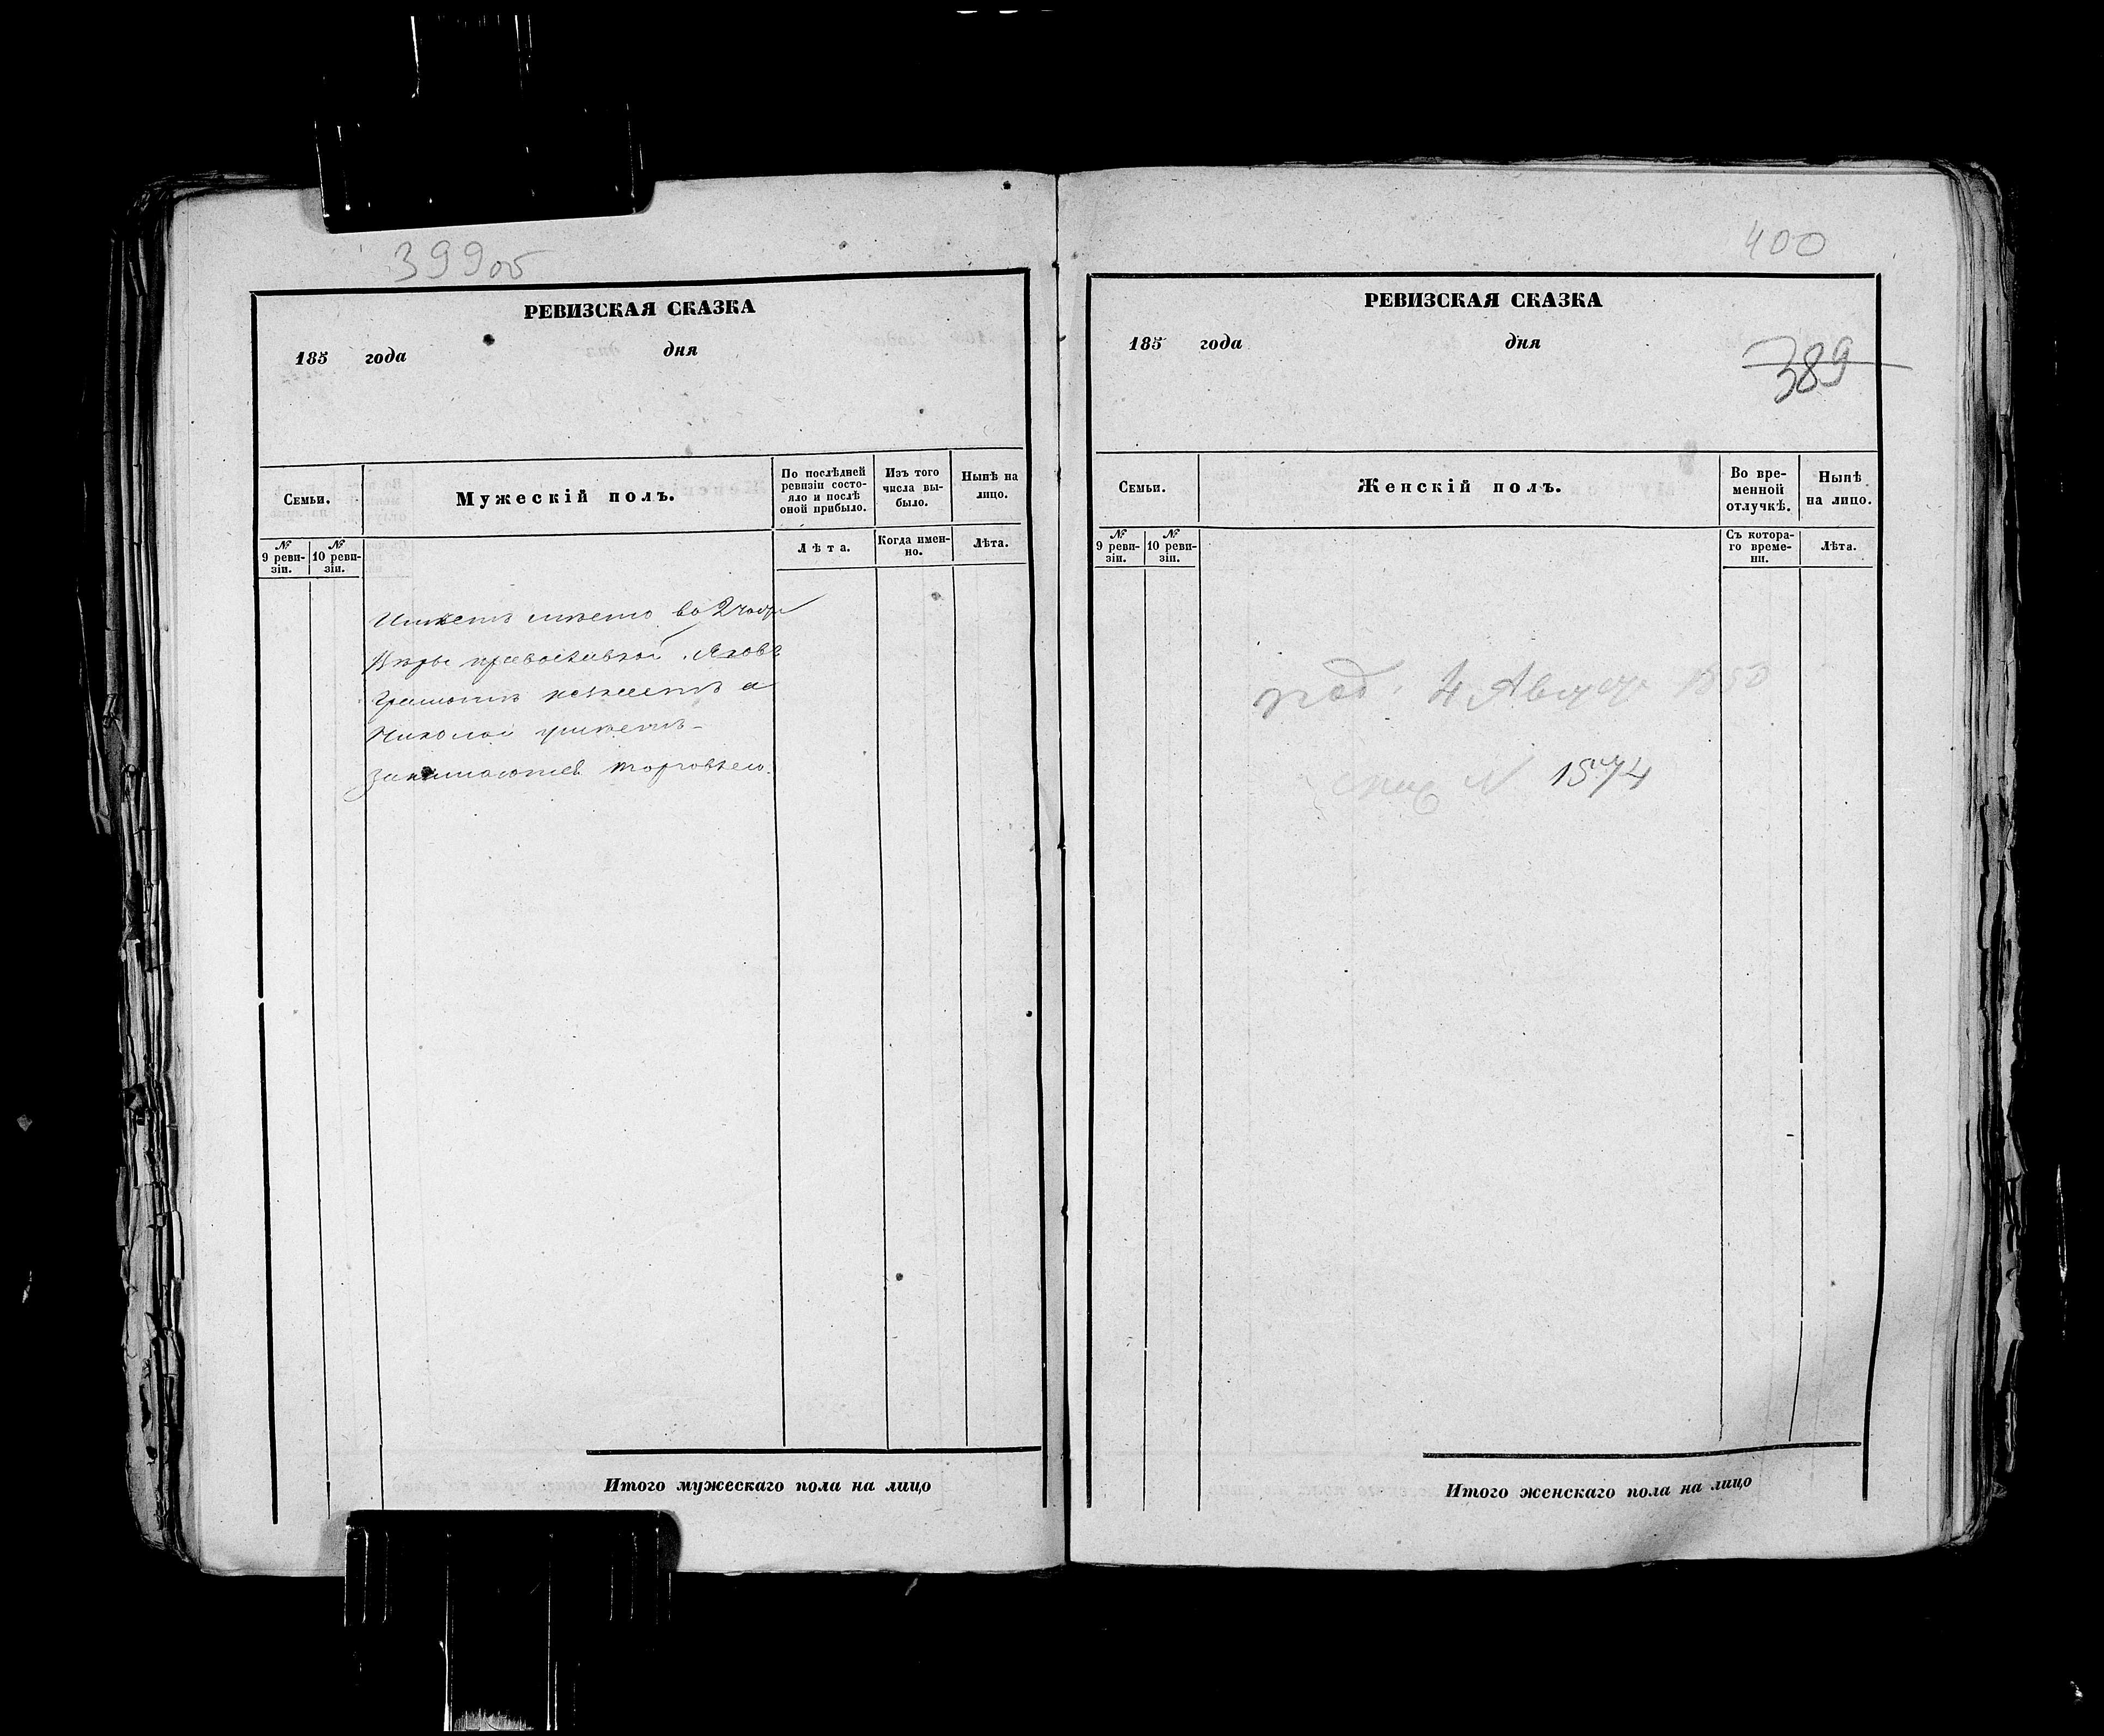 399об
РЕВИЗСКАЯ СКАЗКА
185 года дня
Семьи.
Мужескій полъ.
По послѣдней ревизіи состо-
яло и послѣ
оной прибыло.
Изъ того
числа вы-
было.
Нынѣ на
лицо.
№
9 реви-
зіи.
№
10 реви-
зіи.
Лѣта.
Когда имен-
но.
Лѣта.
Имѣетъ мѣсто во 2 части
Вѣры православной. Яковъ
Грамотѣ неумѣетъ а
Николай умѣетъ-
Занимаются торговлею.
Итого мужескаго пола на лицо
400
РЕВИЗСКАЯ СКАЗКА
185 года дня
389
Семьи.
Женскій полъ.
Во вре-
менной
отлучкѣ.
Нынѣ
на лицо.
№
9 реви-
зіи.
№
10 реви-
зіи.
Съ котора-
го време-
ни.
Лѣта.
4 Августа 1850
№ 1574
Итого женскаго пола на лицо